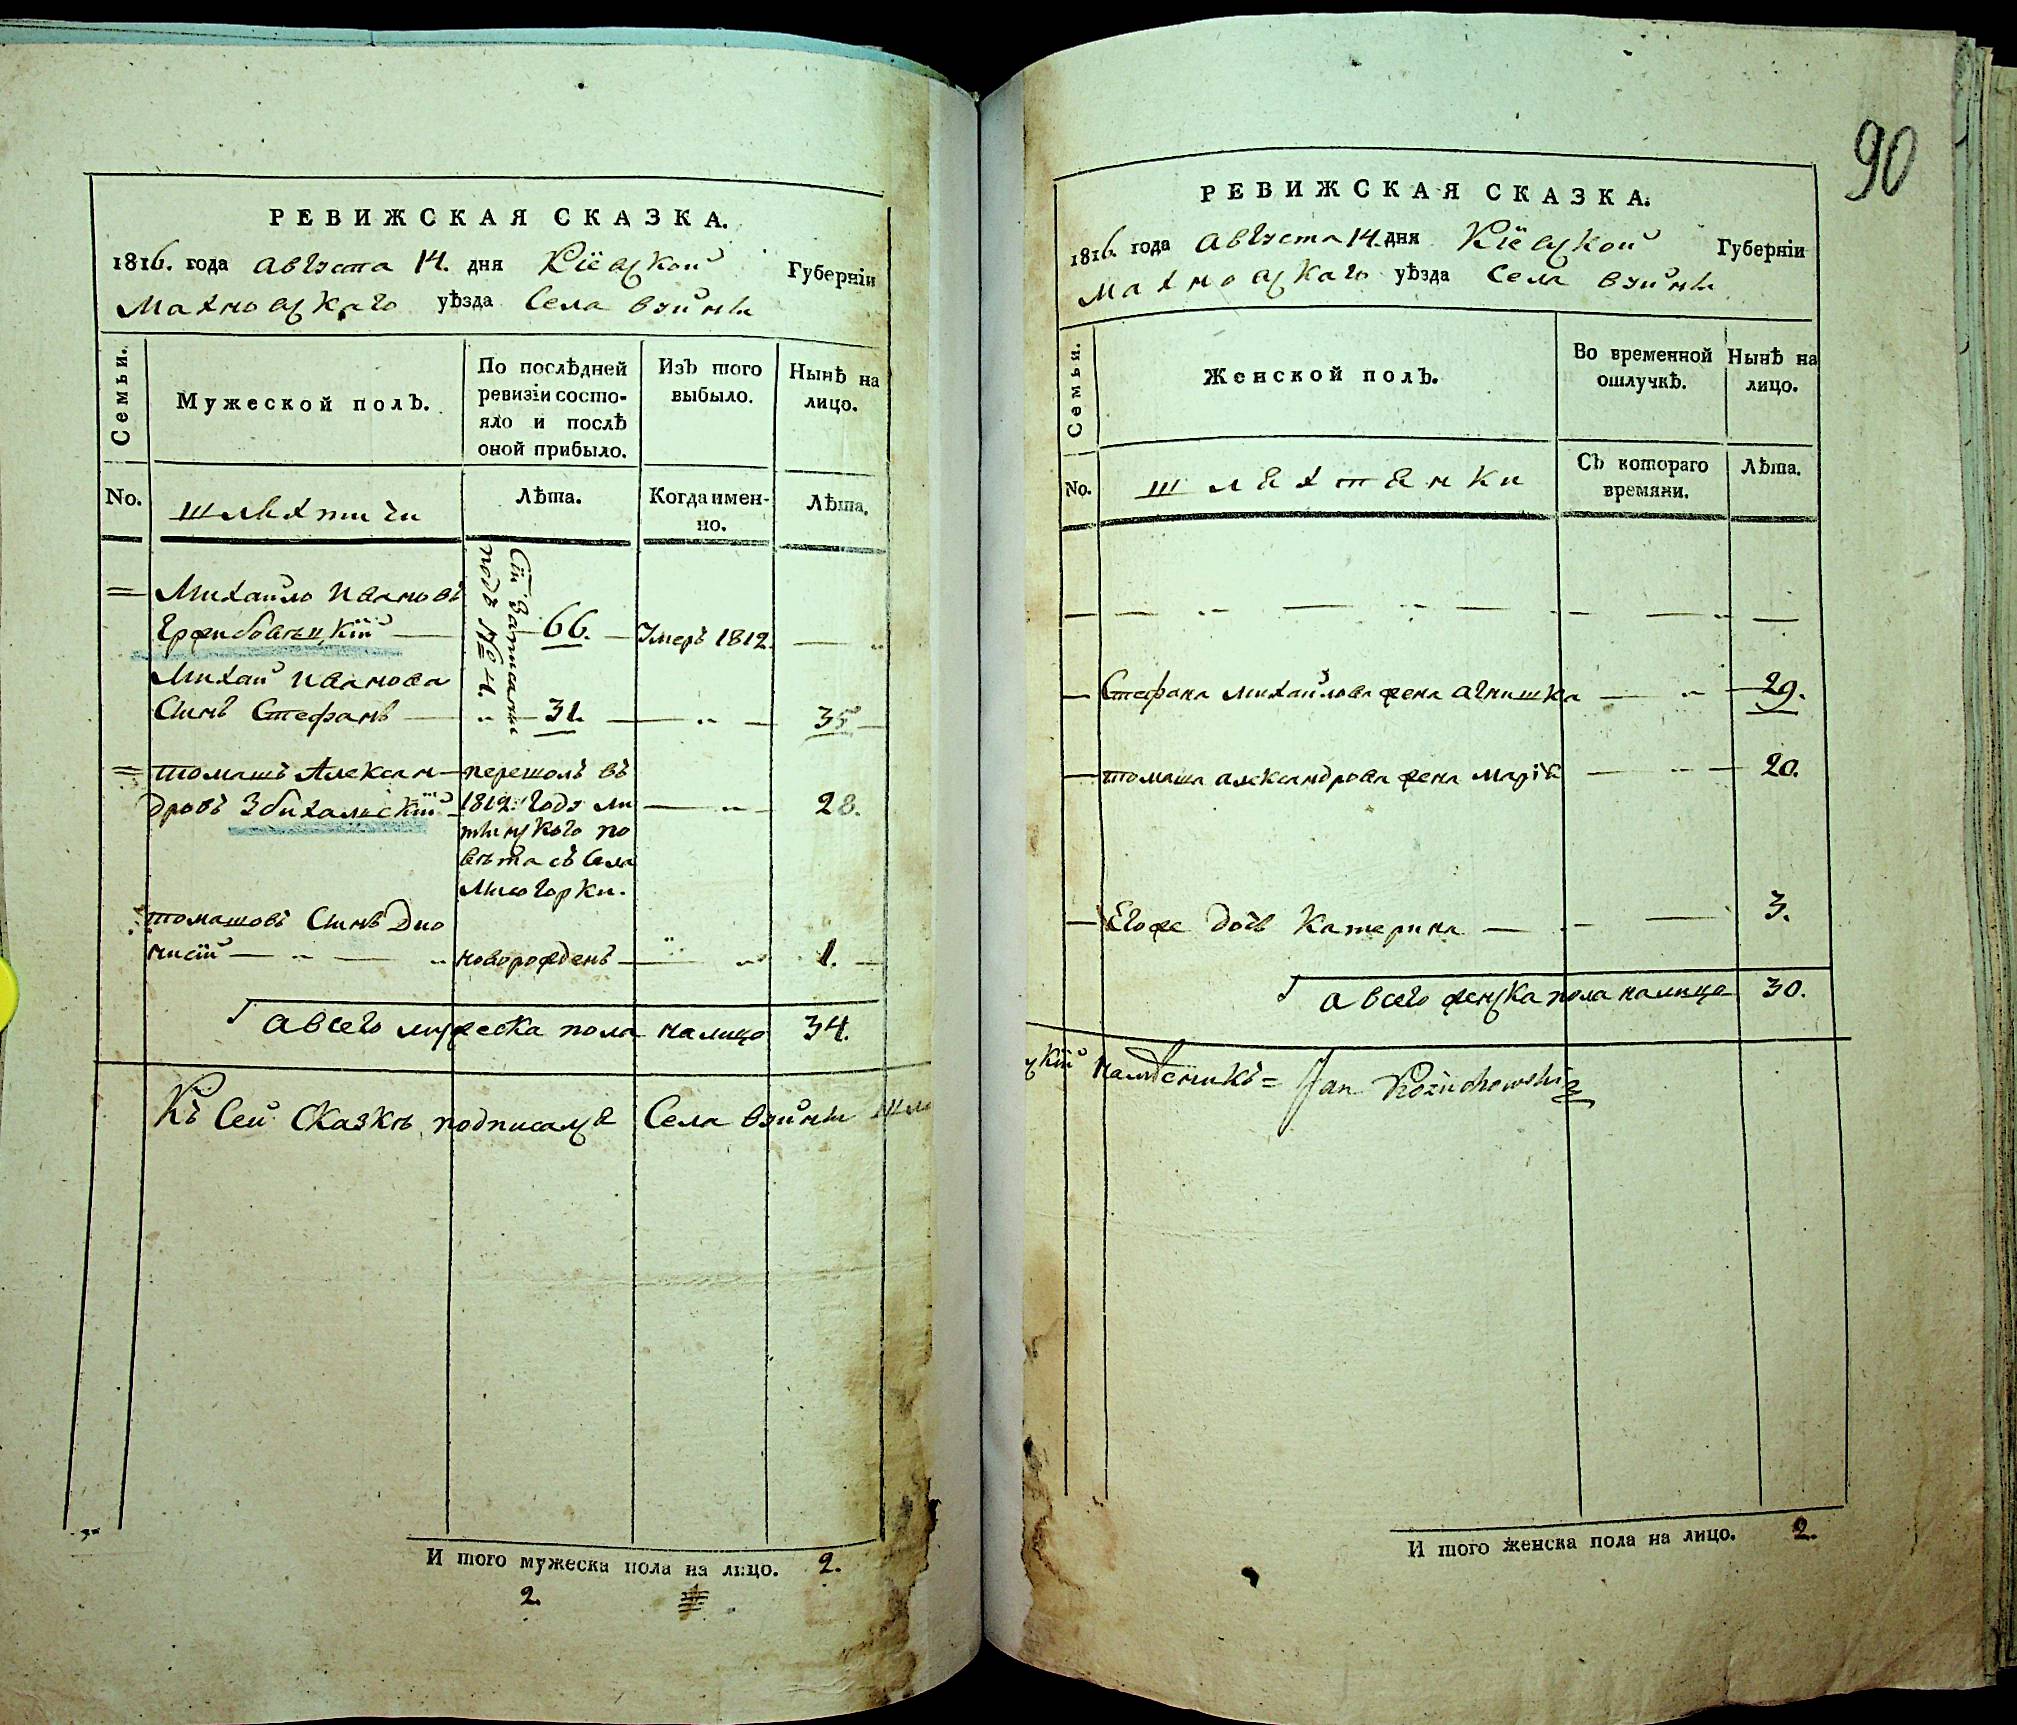 РЕВИЖСКАЯ СКАЗКА.
1816. года августа 14. дня Кіевской Губерніи
Махновскаго уѣзда Села
Семьи.
Мужеской полъ.
По послѣдней ревизіи состо-
яло и послѣ
оной прибыло.
Изъ того
выбыло.
Нынѣ на
лицо.
No.
Шляхтичи
Лѣта.
Когда имен-
но.
Лѣта.
Михайло Ивановъ
66. Умеръ 1812.
Сіи Записании
подъ № 4.
Михай Иванова
Синъ Стефанъ 31. 35
Томашъ Алексан-
дровъ Збихальскій
перешолъ въ
1812. Году Ли
тинского по
вѣта съ Села
Лисогорки.
28.
Томашовъ Синъ Дио
нисій новорожденъ 1.
а всего мужеска пола налицо 34.
Къ Сей Сказкѣ подписался Села
И того мужеска пола на лицо. 2.
2.
90
РЕВИЖСКАЯ СКАЗКА.
1816. года августа 14. дня Кіевской Губерніи
Махновскаго уѣзда Села
Семьи.
Женской полъ.
Во временной
отлучкѣ.
Нынѣ на
лицо.
No.
Шляхтянки
Съ котораго
времяни.
Лѣта.
Стефана Михайлова жена Агнишка 29.
Томаша Александрова жена Марія 20.
Егоже дочъ Катерина 3.
а всего женска пола налицо 30.
Jan Kożuchowski
И того женска пола на лицо. 2.